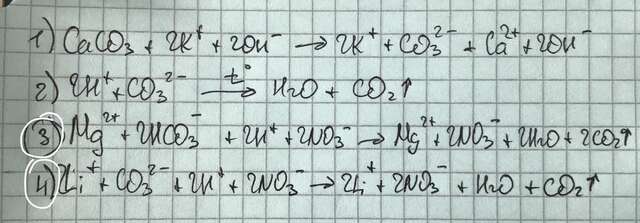 1) CaCO₃ + 2K⁺ + 2OH⁻ → 2K⁺ + CO₃²⁻ + Ca²⁺ + 2OH⁻
2) 2H⁺ + CO₃²⁻ →(t°) H₂O + CO₂↑
3) Mg²⁺ + 2HCO₃⁻ + 2H⁺ + 2NO₃⁻ → Mg²⁺ + 2NO₃⁻ + 2H₂O + 2CO₂↑
4) 2Li⁺ + CO₃²⁻ + 2H⁺ + 2NO₃⁻ → 2Li⁺ + 2NO₃⁻ + H₂O + CO₂↑